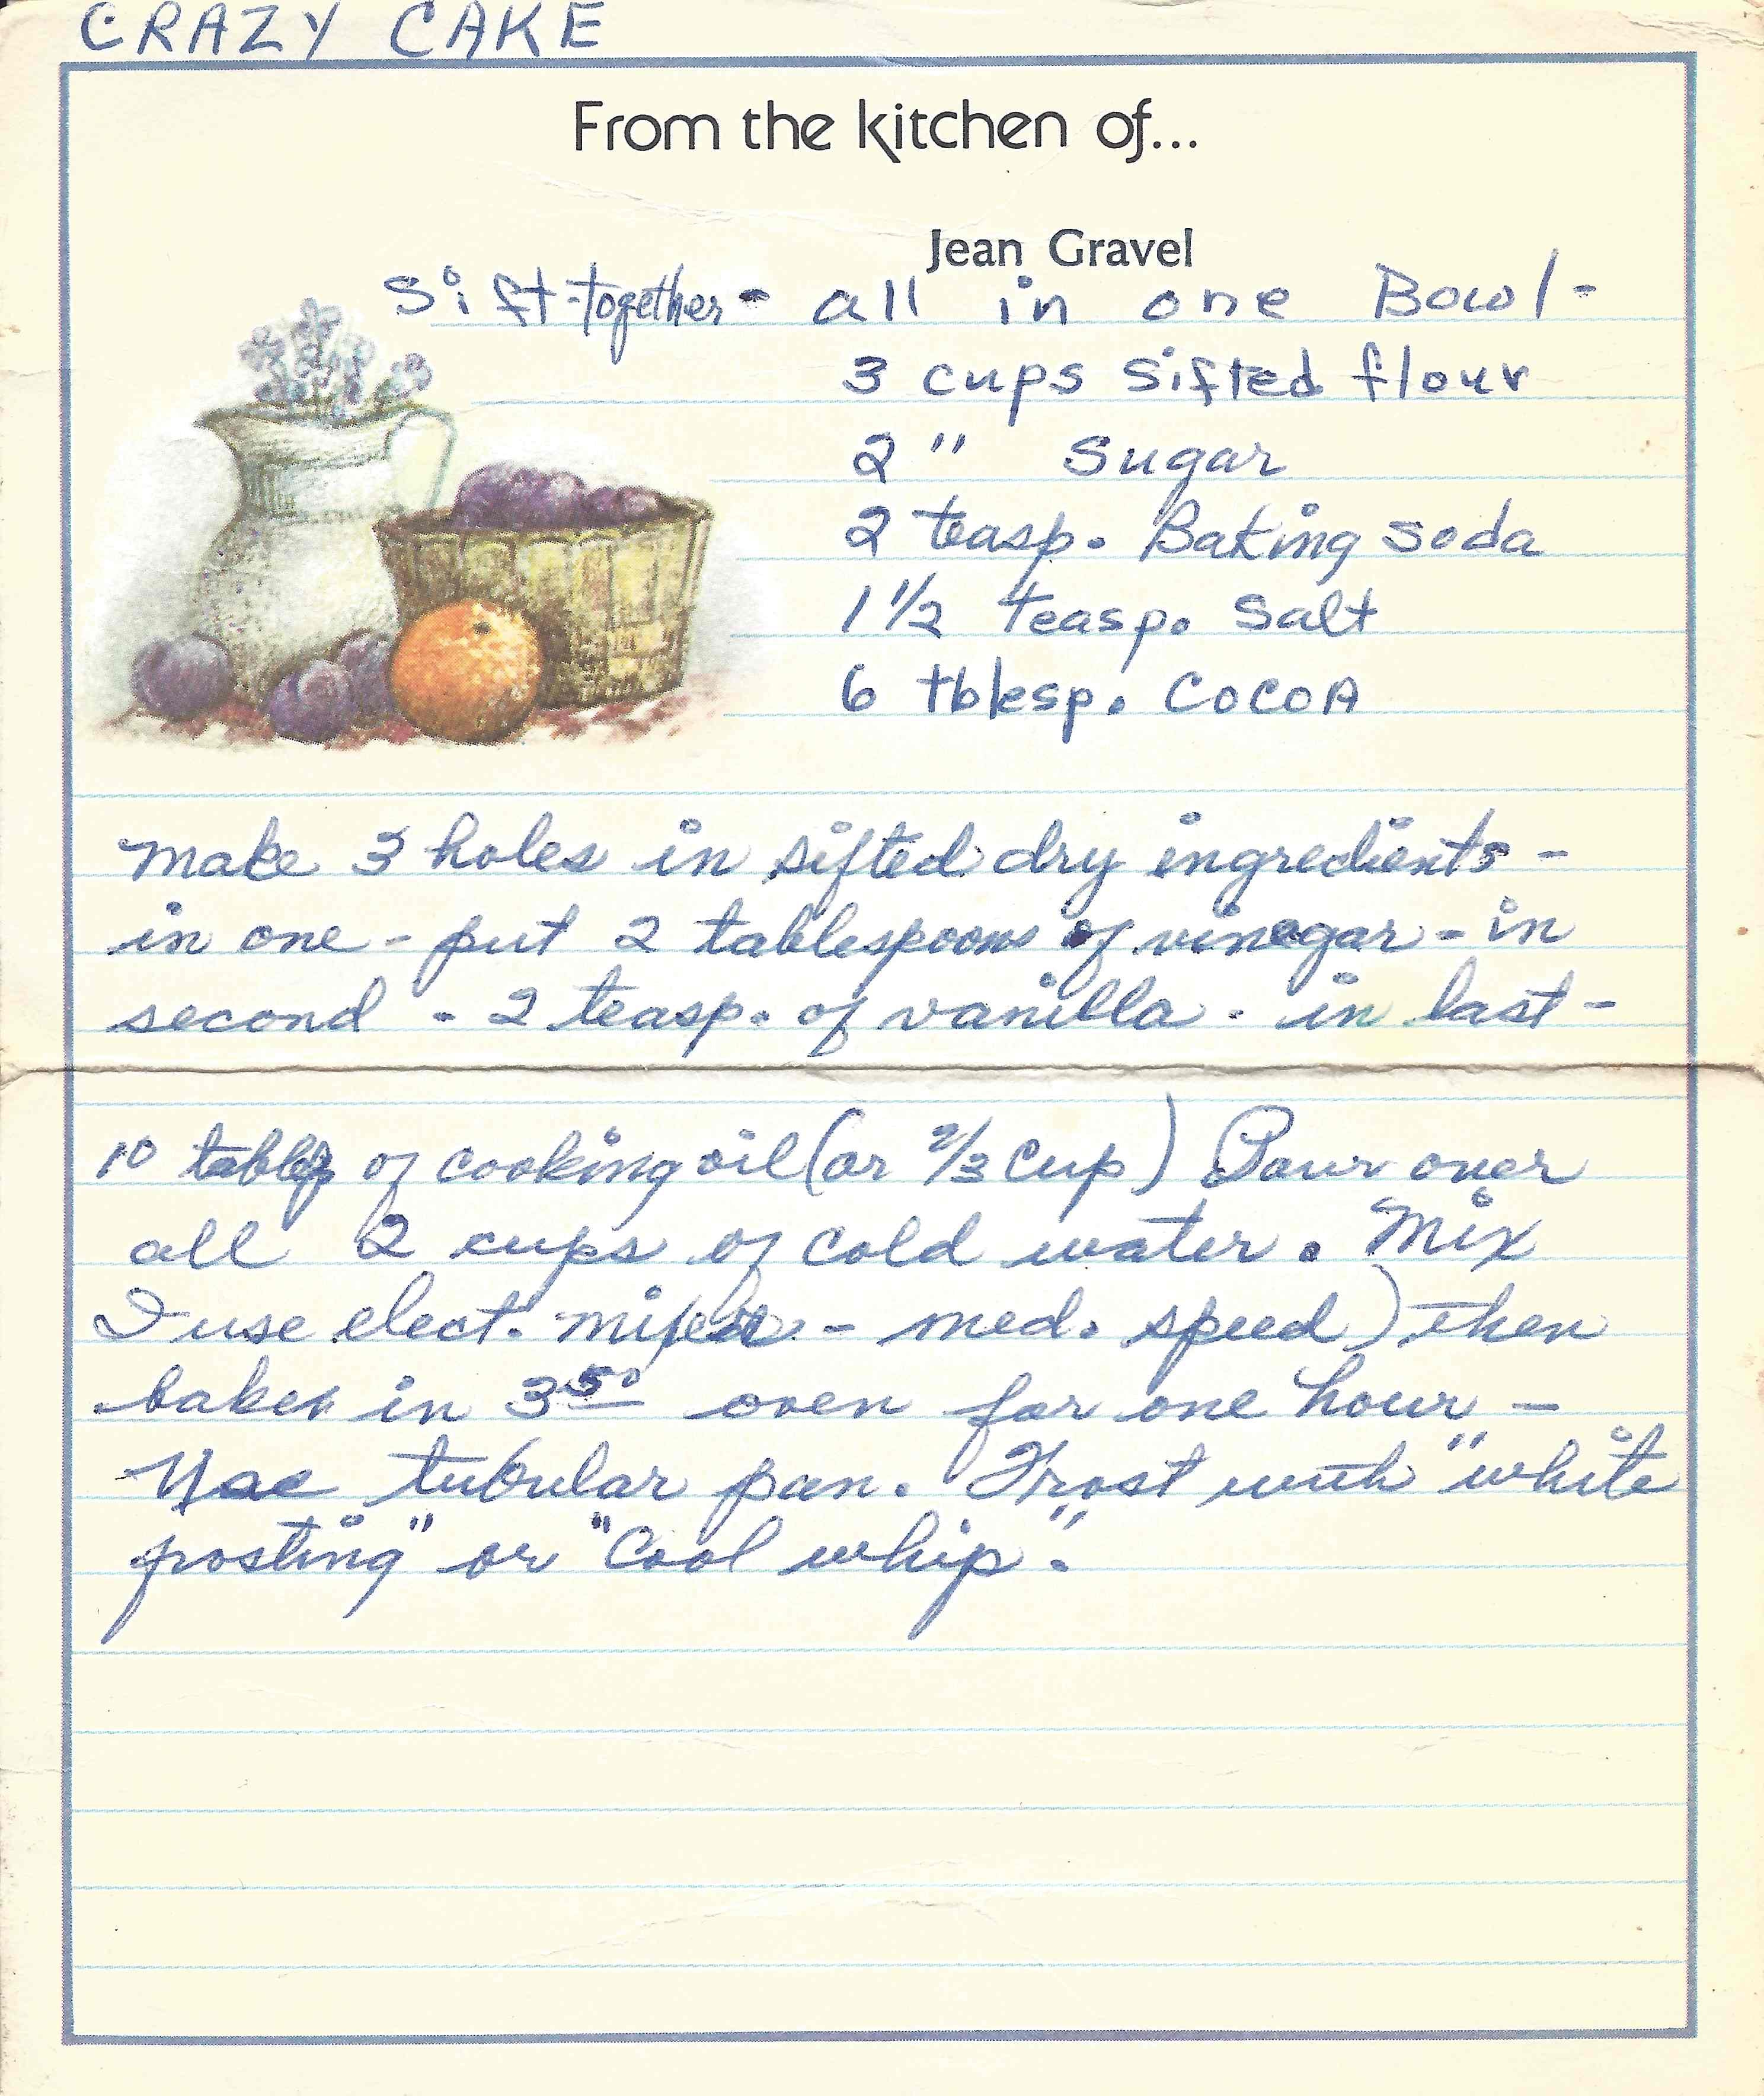 CRAZY CAKE
From the kitchen of...
Jean Gravel
Sift-together - all in one Bowl -
3 cups sifted flour
2 " Sugar
2 teasp. Baking soda
1 1/2 teasp. Salt
6 tblesp. COCOA
Make 3 holes in sifted dry ingredients -
in one - put 2 tablespoons of vinegar - in
second - 2 teasp. of vanilla - in last -
10 of cooking oil (or 2/3 cup) Pour over
all 2 cups of cold water. Mix
I use elect. mixer - med. speed) then
bake in 350 oven for one hour -
Use tubular pan. Frost with "white
frosting" or "Cool whip."